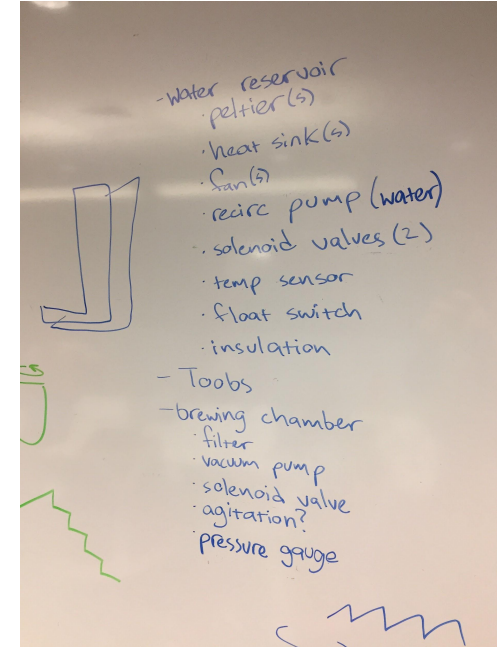 - water reservoir
· peltier(s)
· heat sink(s)
· fan(s)
· recirc pump (water)
· solenoid valves (2)
· temp sensor
· float switch
· insulation
- Toobs
- brewing chamber
· filter
· vacuum pump
· solenoid valve
· agitation?
· pressure gauge